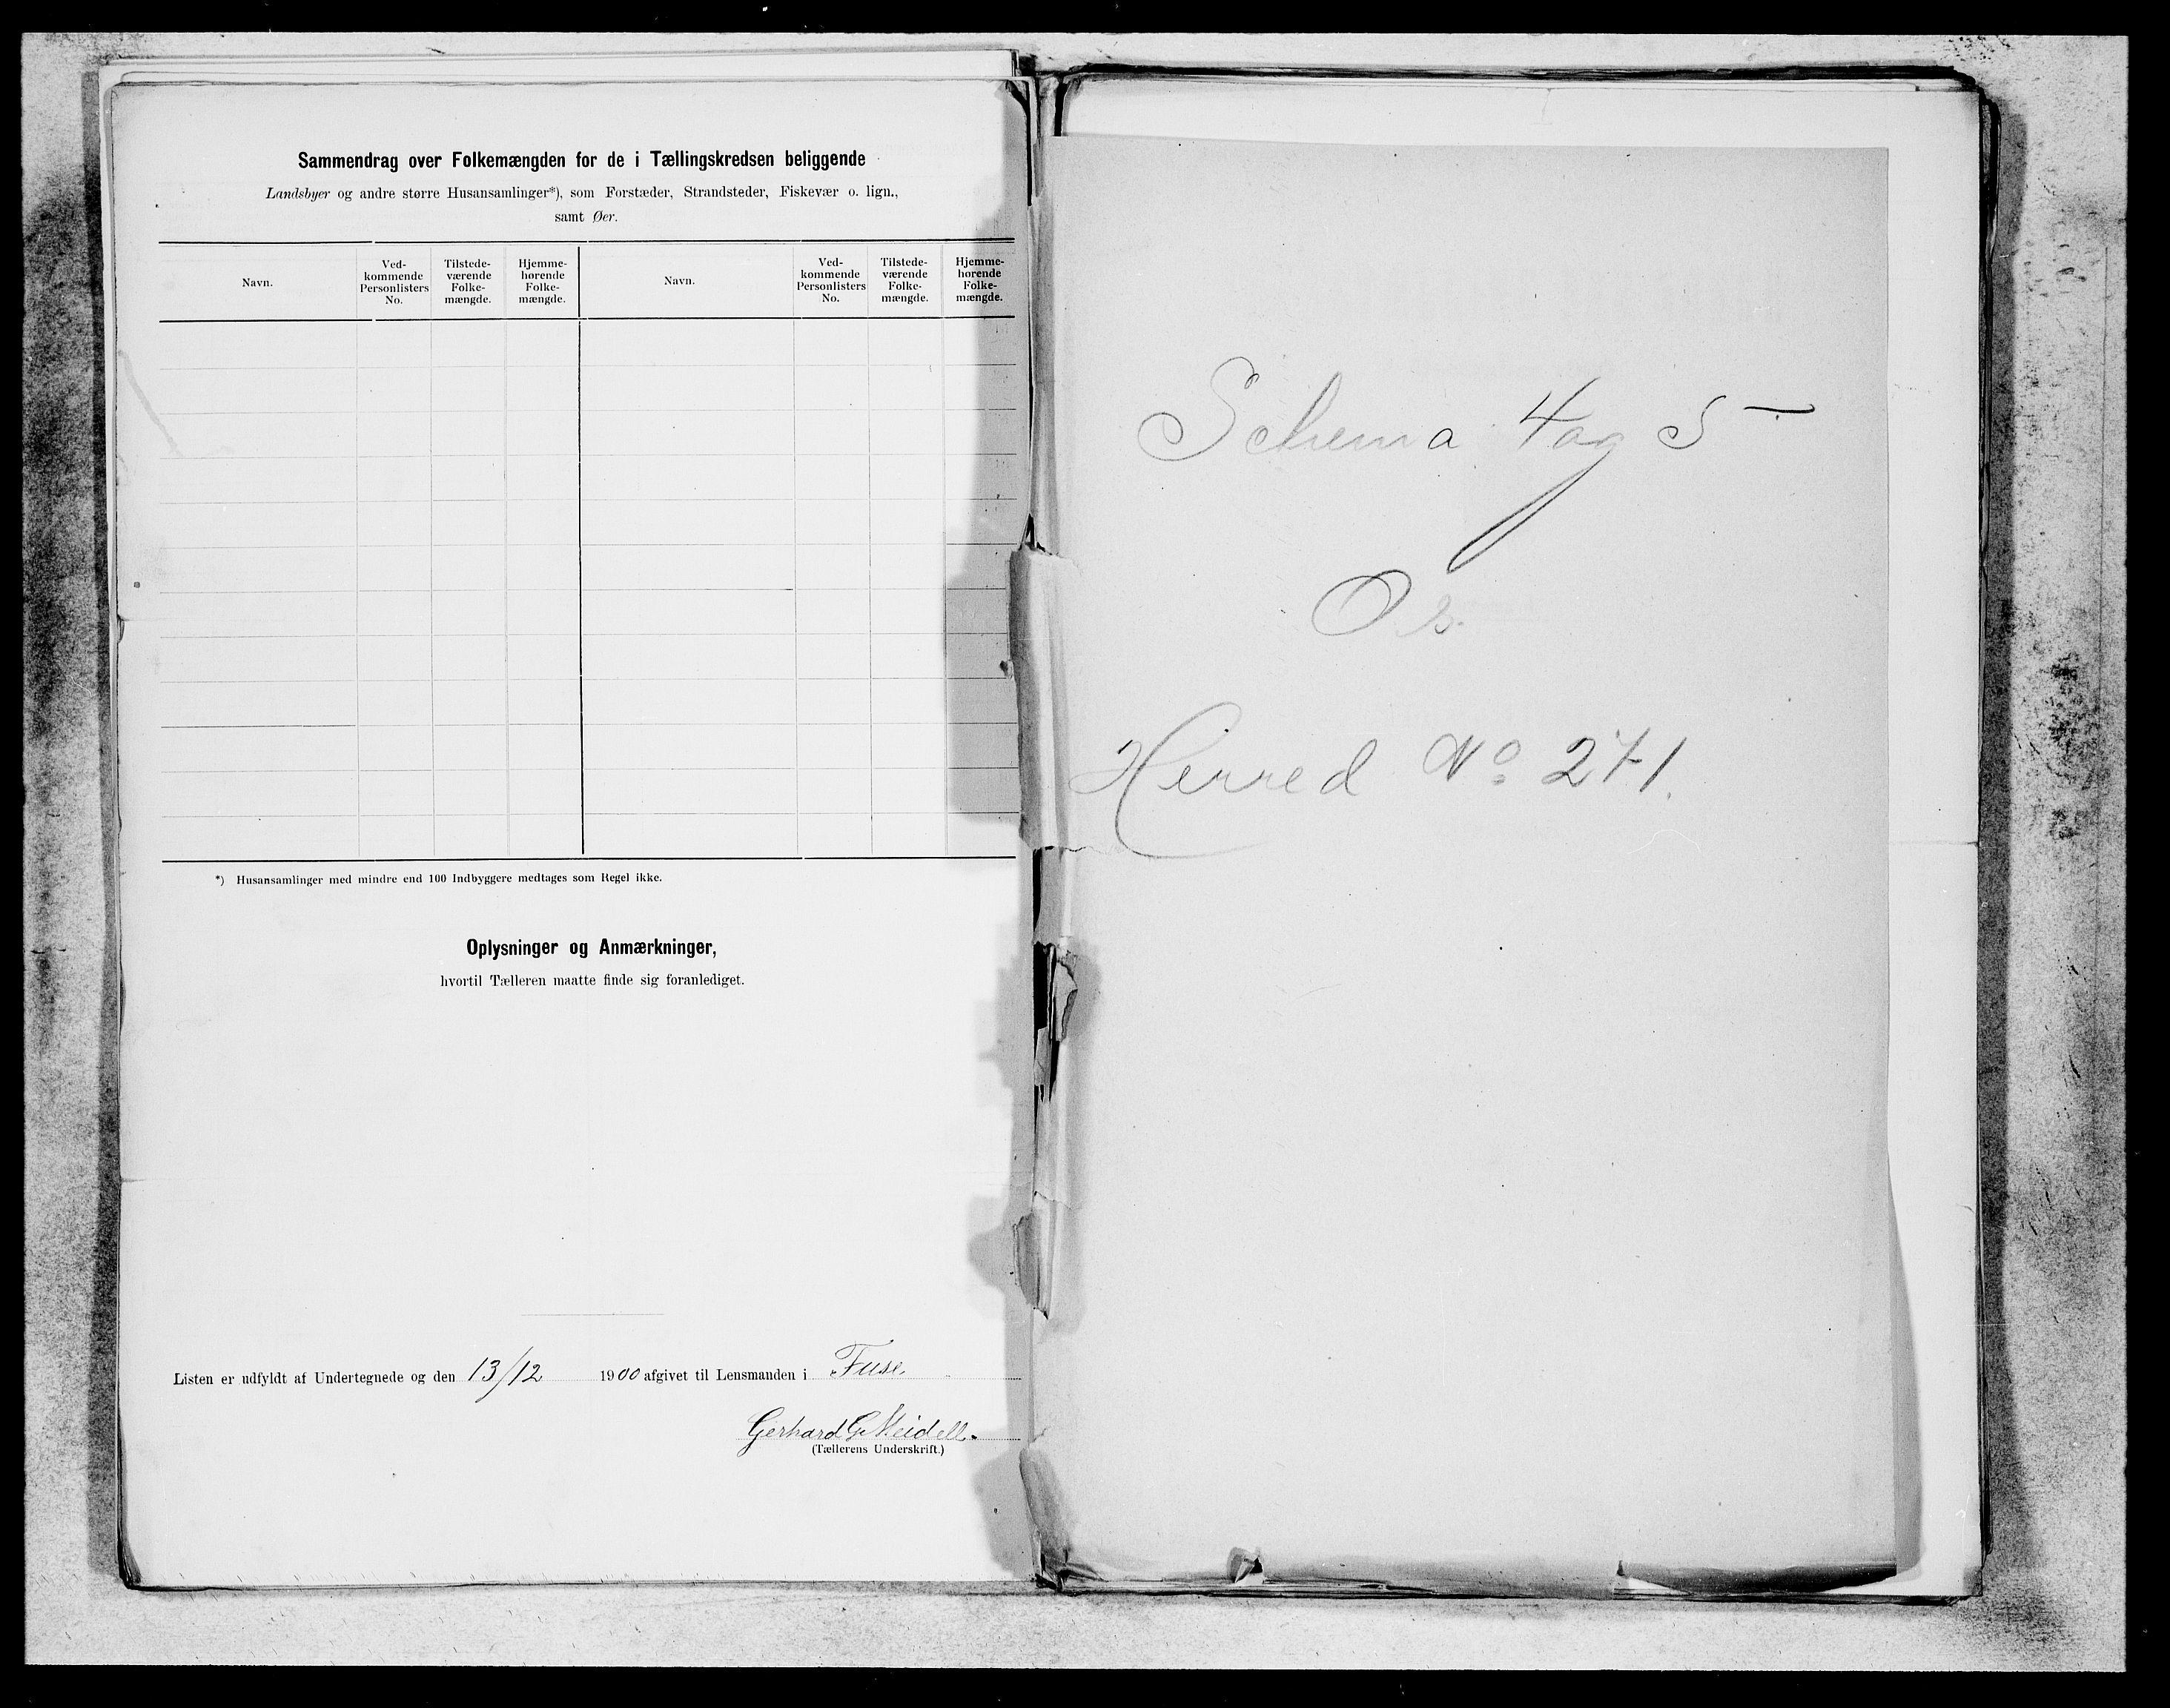 Sammendrag over Folkemængden for de i Tællingskredsen beliggende
Landsbyer og andre større Husansamlinger*), som Forstæder, Strandsteder, Fiskevær o. lign.,
samt Øer.
Navn.
Ved-
kommende
Personlisters
No.
Tilstede-
værende
Folke-
mængde.
Hjemme-
hørende
Folke-
mængde.
Navn.
Ved-
kommende
Personlisters
No.
Tilstede-
værende
Folke-
mængde.
Hjemme-
hørende
Folke-
mængde.
*) Husansamlinger med mindre end 100 Indbyggere medtages som Regel ikke.
Oplysninger og Anmærkninger,
hvortil Tælleren maatte finde sig foranlediget.
Listen er udfyldt af Undertegnede og den 13/12 1900 afgivet til Lensmanden i Fuse.
Gerhard G Meidell.
(Tællerens Underskrift.)
Schema 4 og 5
Os.
Herred No 271.